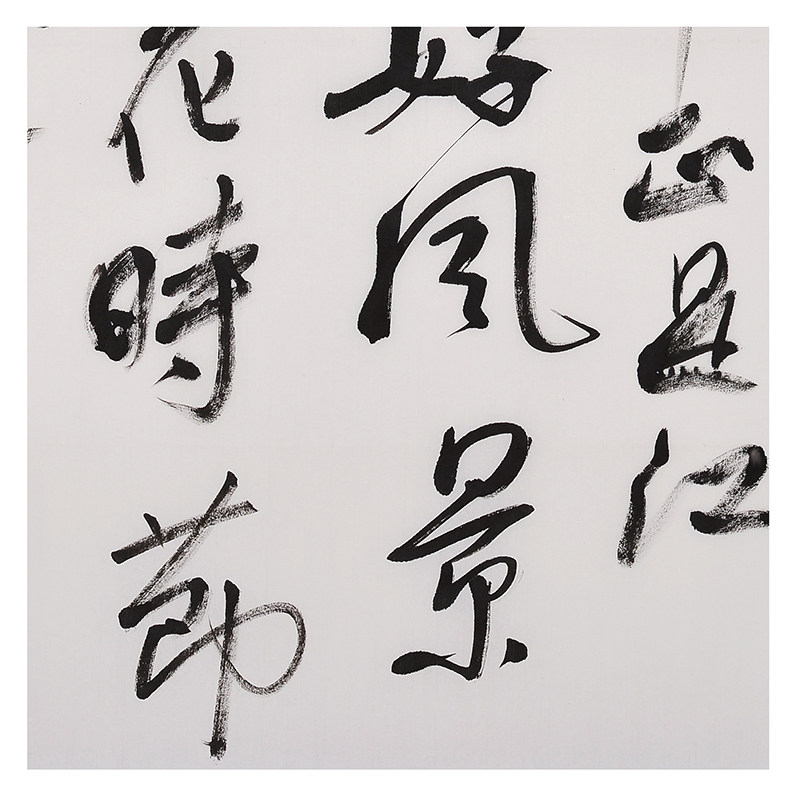 正是江
好风景
花時節